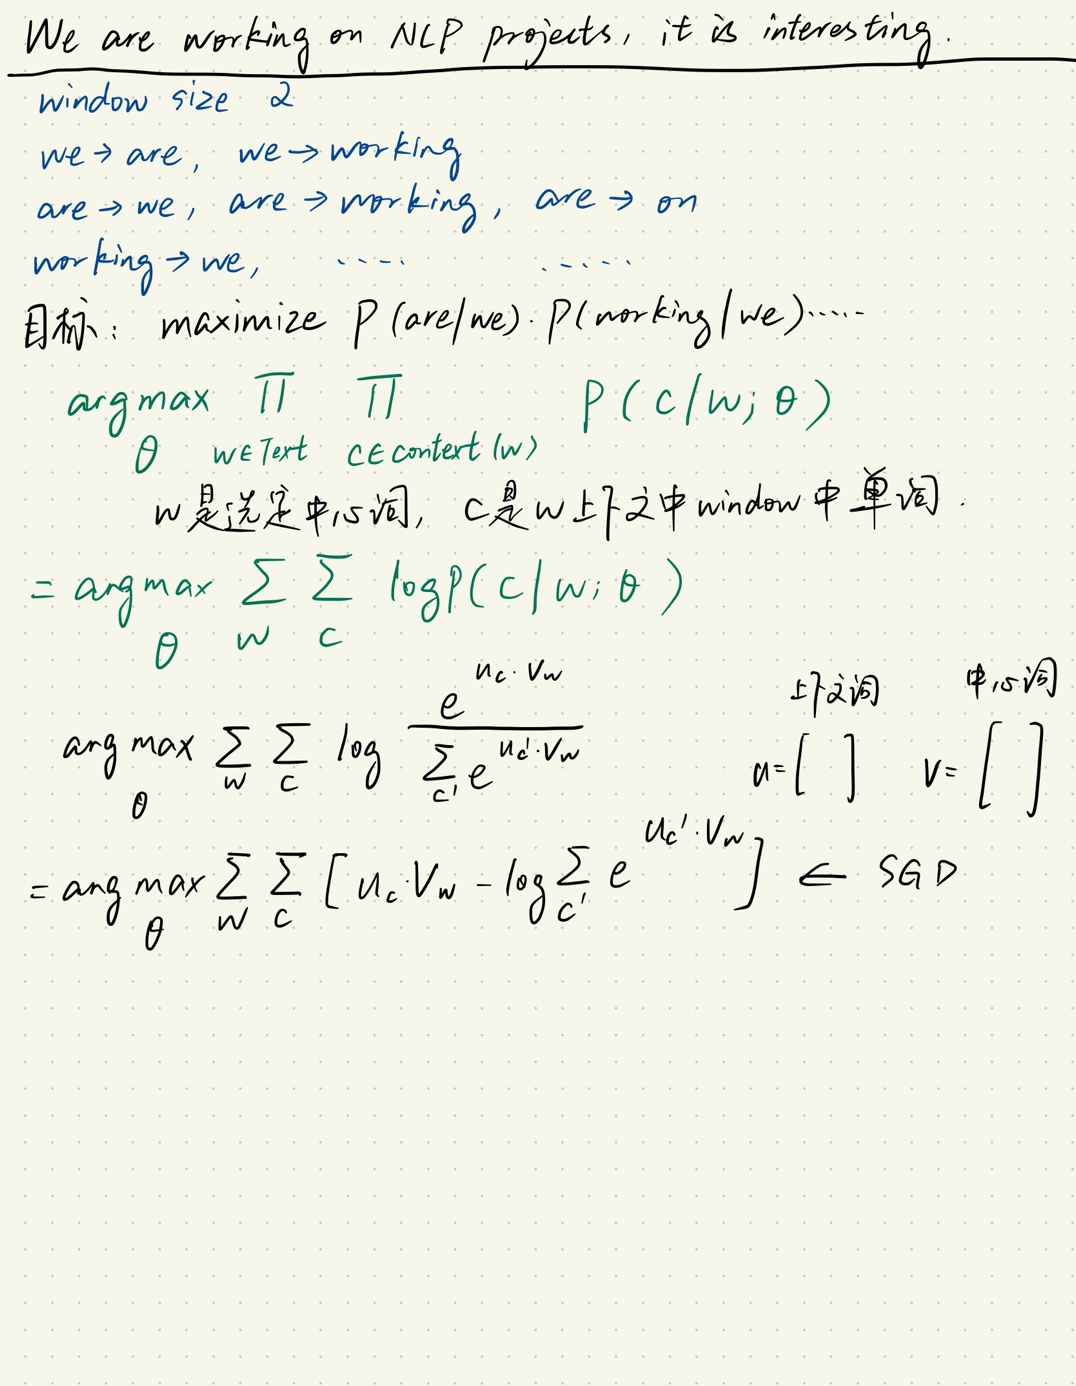 We are working on NLP projects, it is interesting.
window size 2
we → are, we → working
are → we, are → working, are → on
working → we, ..... .....
目标: maximize P(are/we)·P(working/we)·····
arg max_θ ∏_{w∈Text} ∏_{c∈context(w)} P(c/w; θ)
w是选定中心词, c是w上下文中window中单词.
= arg max_θ Σ_w Σ_c log P(c/w; θ)
上下文词 中心词
arg max_θ Σ_w Σ_c log e^{u_c·v_w} / Σ_{c'} e^{u_c'·v_w} u=[ ] v=[ ]
= arg max_θ Σ_w Σ_c [u_c·v_w − log Σ_{c'} e^{u_c'·v_w}] ← SGD